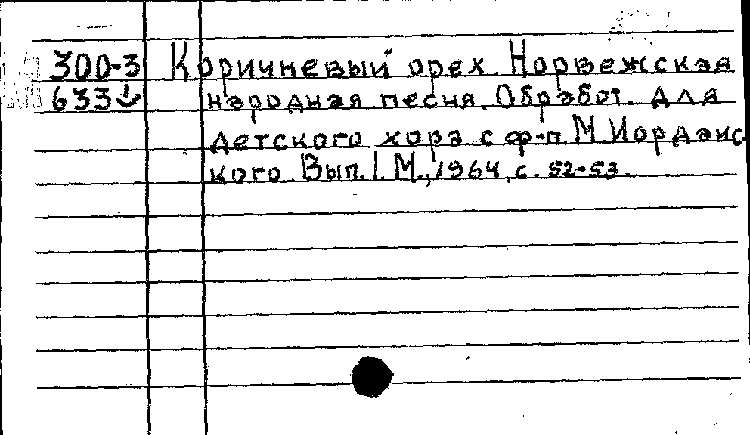 300-3 Коричневый орех. Норвежская
633↓ народная песня. Обработ. для
детского хора с ф-п. М. Иорданс
кого. Вып. 1. М., 1964, с. 52-53.